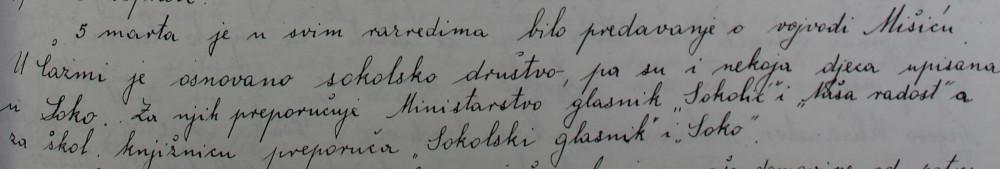 5 marta je u svim razredima bilo predavanje o vojvodi Mišiću.
U Čazmi je osnovano sokolsko društvo, pa su i nekoja djeca upisana
u Soko. Za njih preporučuje Ministarstvo glasnik „Sokolić" i „Naša radost" a
za škol. knjižnicu preporuča „Sokolski glasnik" i „Soko".